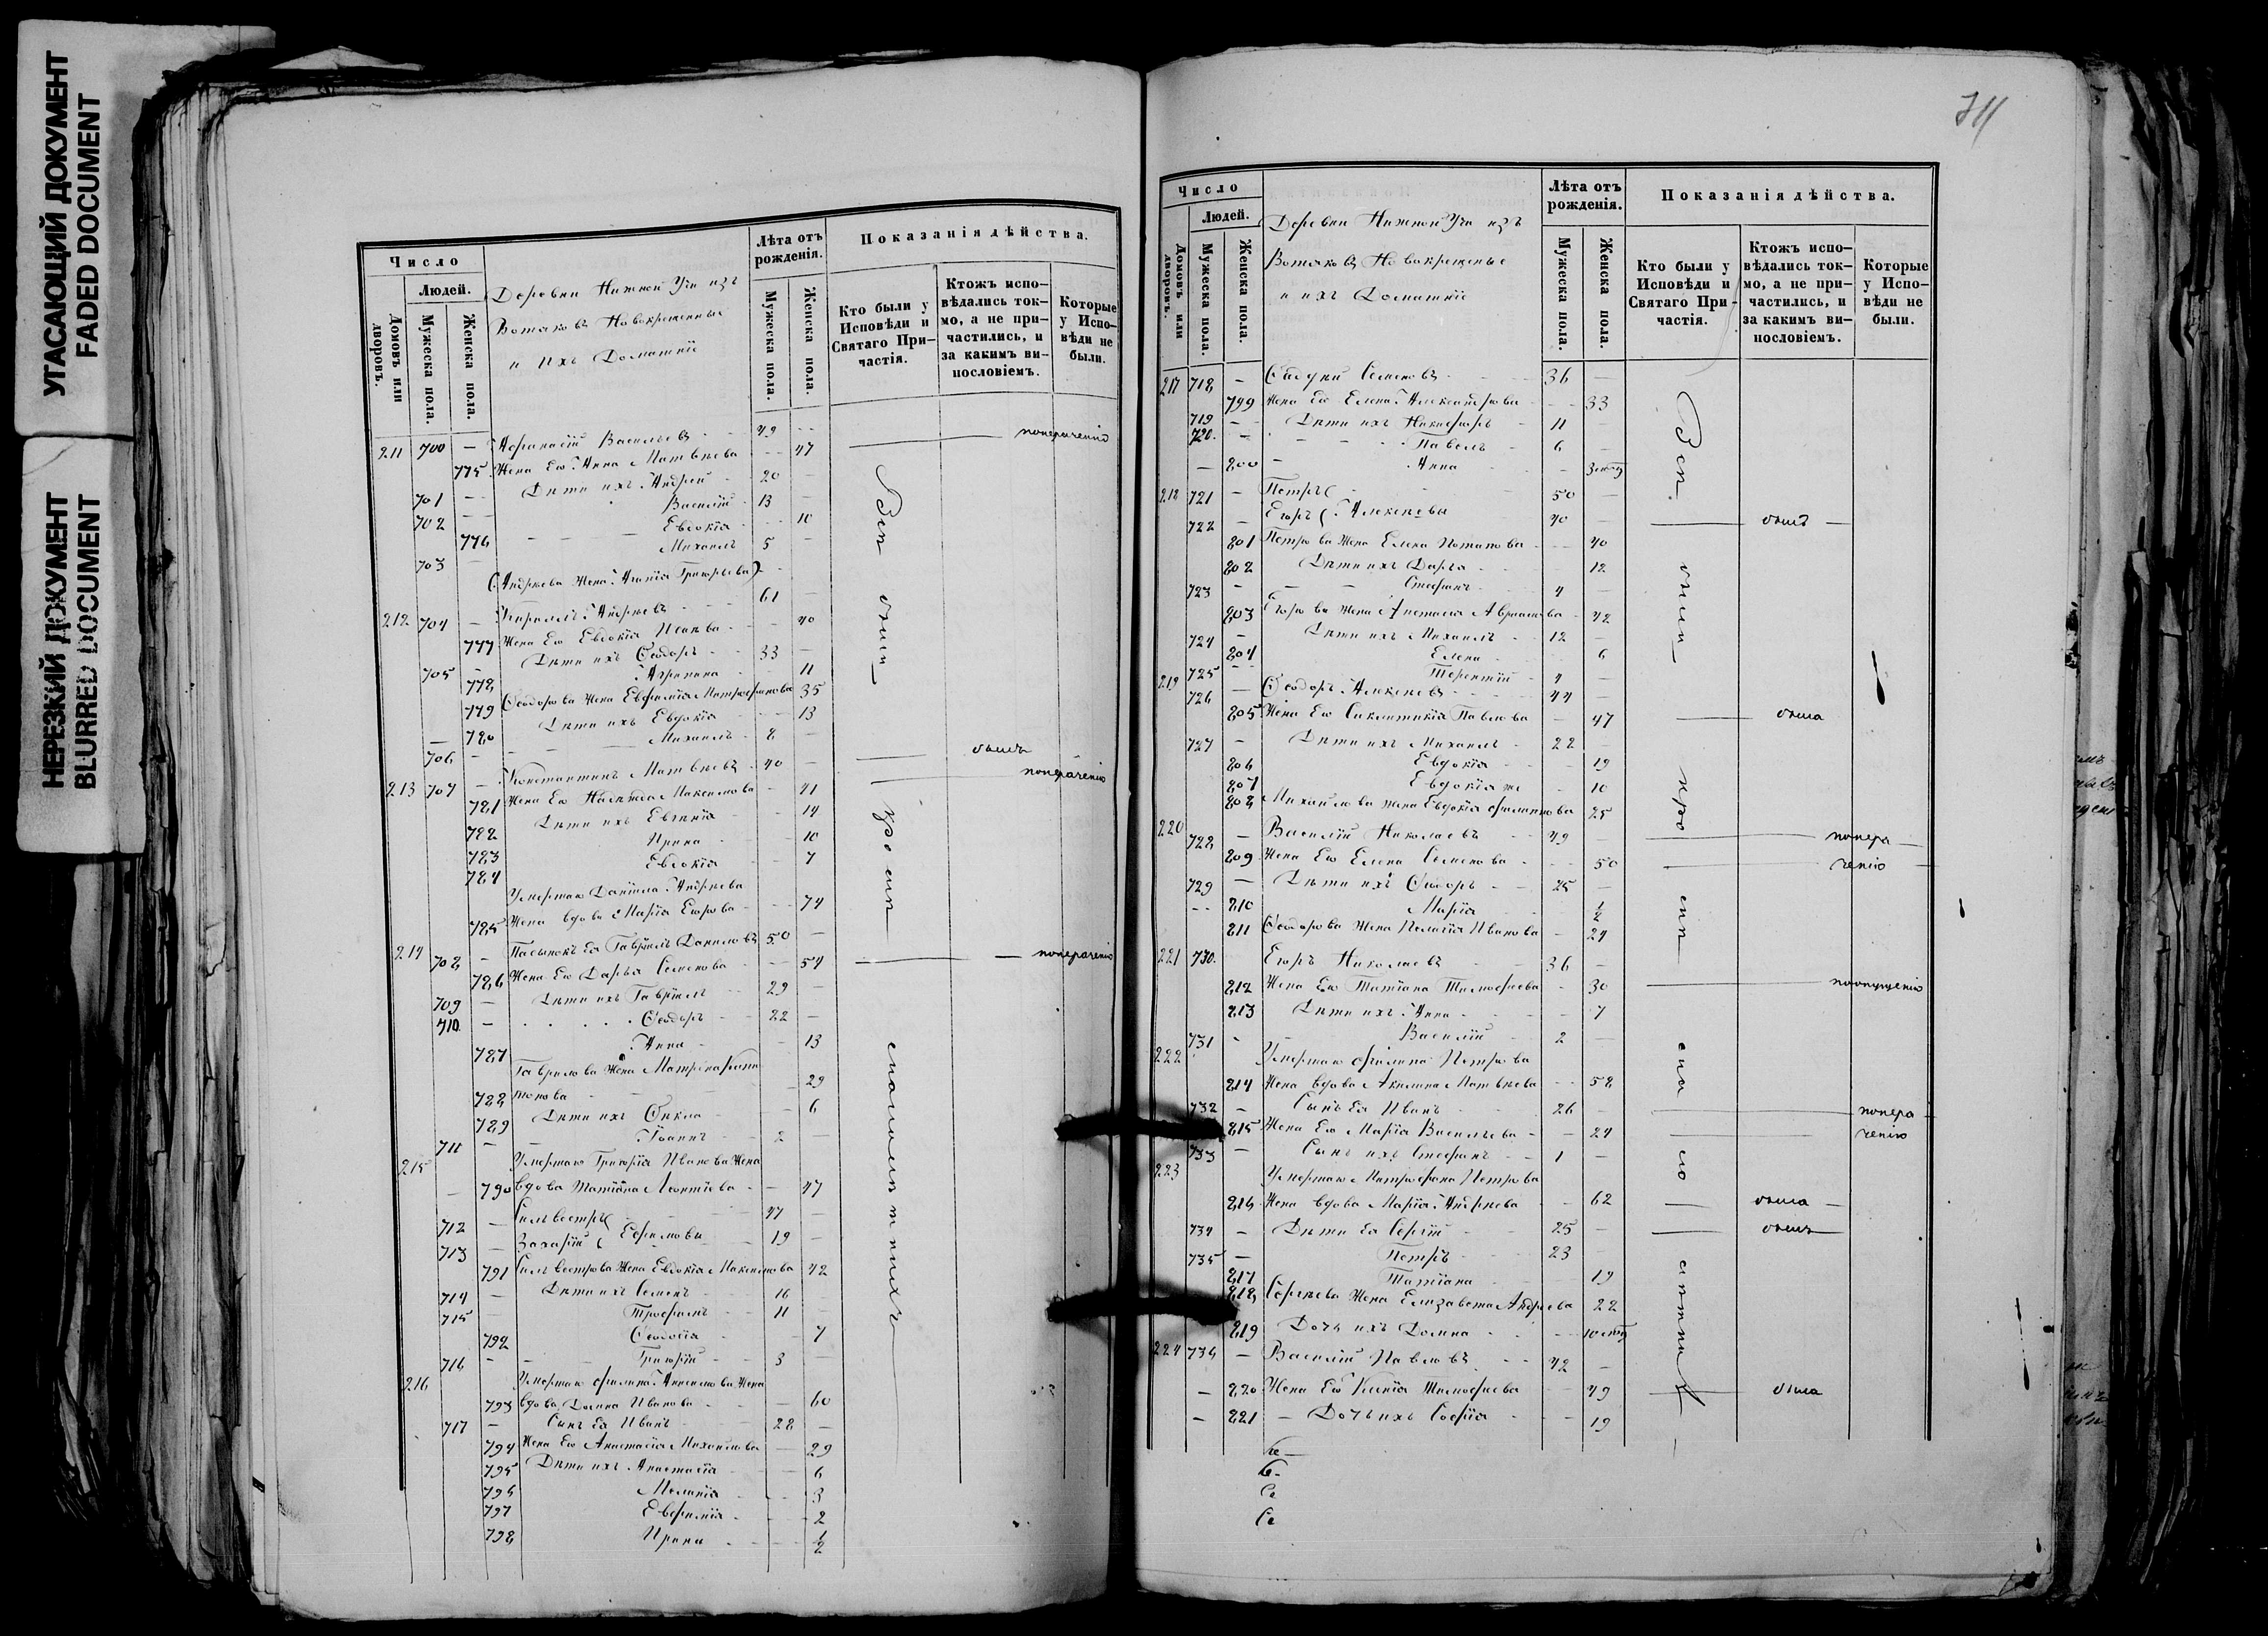 УГАСАЮЩИЙ ДОКУМЕНТ
FADED DOCUMENT
НЕРЕЗКИЙ ДОКУМЕНТ
BLURRED DOCUMENT
Число
Людей.
Домовъ или дворовъ.
Мужеска пола.
Женска пола.
Деревни Нижней Учи изъ
Вотяковъ Новокрещенные
и ихъ Домашніе
Лѣта отъ рожденія.
Мужеска пола.
Женска пола.
Показанія дѣйства.
Кто были у Исповѣди и Святаго Причастія.
Ктожъ исповѣдались токмо, а не причастились, и за какимъ винословіемъ.
Которые у Исповѣди не были.
211 700 — Афанасій Васильевъ 49 —
775 Жена Его Анна Матвѣева — 47 понерачению
701 — Дѣти ихъ Андрей 20 —
702 — Василій 13 —
776 Евдокія — 10
703 — Михаилъ 5 —
(Андреева Жена Григорьева)
212 704 — Кириллъ Андреевъ 61 —
777 Жена Его Евдокія Исаева — 40
705 — Дѣти ихъ Ѳеодоръ 33 —
778 Агрипина — 11
779 Ѳеодорова Жена Евфимія Митрофанова 35
780 Дѣти ихъ Евдокія — 13
706 — Михаилъ 8 —
213 707 — Константинъ Матвѣевъ 40 — былъ
781 Жена Его Надежда Максимова — 41 понерачению
782 Дѣти ихъ Евгенія — 14
783 Ирина — 10
784 Евдокія — 7
Умершаго Даніила Андреева
785 Жена вдова Марія Егорова — 74
214 708 — Пасынокъ Ея Гавріилъ Даниловъ 50 —
786 Жена Его Дарья Семенова — 54 понерачению
709 — Дѣти ихъ Гавріилъ 29 —
710 — Ѳеодоръ 22 —
787 Анна — 13
Гаврилова Жена Матрена
788 — 29
789 Дѣти ихъ Ѳекла — 6
711 — Іоаннъ 2 —
215 Умершаго Григорія Иванова Жена
790 вдова Татіана Леонтіева — 47
712 — Сильвестръ 47 —
713 — Захарій Ефимовы 19 —
791 Сильвестрова Жена Евдокія Максимова 42
714 — Дѣти ихъ Семенъ 16
715 — Трофимъ 11
792 Ѳеодосія — 7
716 — Григорій 3 —
216 Умершаго Филипа Анисимова Жена
793 вдова Домна Иванова — 60
717 — Сынъ Ея Иванъ 28 —
794 Жена Его Анастасія Михайлова — 29
795 Дѣти ихъ Анастасія — 6
796 Меланія — 3
797 Евфимія — 2
798 Ирина — 1/2
Вси были при исповѣди
Число
Людей.
Домовъ или дворовъ.
Мужеска пола.
Женска пола.
Деревни Нижней Учи изъ
Вотяковъ Новокрещеные
и ихъ Домашніе
Лѣта отъ рожденія.
Мужеска пола.
Женска пола.
Показанія дѣйства.
Кто были у Исповѣди и Святаго Причастія.
Ктожъ исповѣдались токмо, а не причастились, и за какимъ винословіемъ.
Которые у Исповѣди не были.
217 718 — Семеновъ 36 —
799 Жена Его Елена Александрова — 33
719 — Дѣти ихъ Никифоръ 11 —
720 — Павелъ 6 —
— 800 Анна —
218 721 — Петръ 50 —
722 — Егоръ Алексеевы 40 — былъ
801 Петрова Жена Елена Потапова — 40
802 Дѣти ихъ Дарья — 12
723 — Стефанъ 4 —
803 Егорова Жена Анастасія — 42
724 — Дѣти ихъ Михаилъ 12 —
804 Елена — 6
725 — Терентій 4 —
219 726 — Ѳеодоръ Алексеевъ 44 —
805 Жена Его Синклитикія Павлова — 47 была
727 — Дѣти ихъ Михаилъ 22 —
806 Евдокія — 19
807 Евдокія же — 10
808 Михайлова жена Евдокія Филиппова 25
220 728 — Василій Николаевъ 49 — понера
809 Жена Его Елена Семенова — 50 чению
729 — Дѣти ихъ Ѳеодоръ 25 —
810 Марія — 1/2
811 Ѳеодорова Жена Пелагія Иванова — 24
221 730 Егоръ Николаевъ 36 —
812 Жена Его Татіана Тимофеева — 30 поопущению
813 Дѣти ихъ Анна — 7
731 — Василій 2 —
222 Умершаго Филипа Петрова
814 Жена вдова Акилина Матвѣева — 58
732 — Сынъ Ея Иванъ 26 — понера
815 Жена Его Марія Васильева — 24 чению
733 — Сынъ ихъ Стефанъ 1 —
223 Умершаго Митрофана Петрова
816 Жена вдова Марія Андреева — 62 была
734 — Дѣти Ея Сергій 25 — былъ
735 — Петръ 23 —
817 Татіана — 19
818 Сергѣева Жена Елизавета Андреева 22
819 Дочь ихъ Домна —
224 736 — Василій Павловъ 42 —
— 820 Жена Его Ксенія Тимофеева — 49 была
— 821 — Дочь ихъ Софія — 19
Вси были